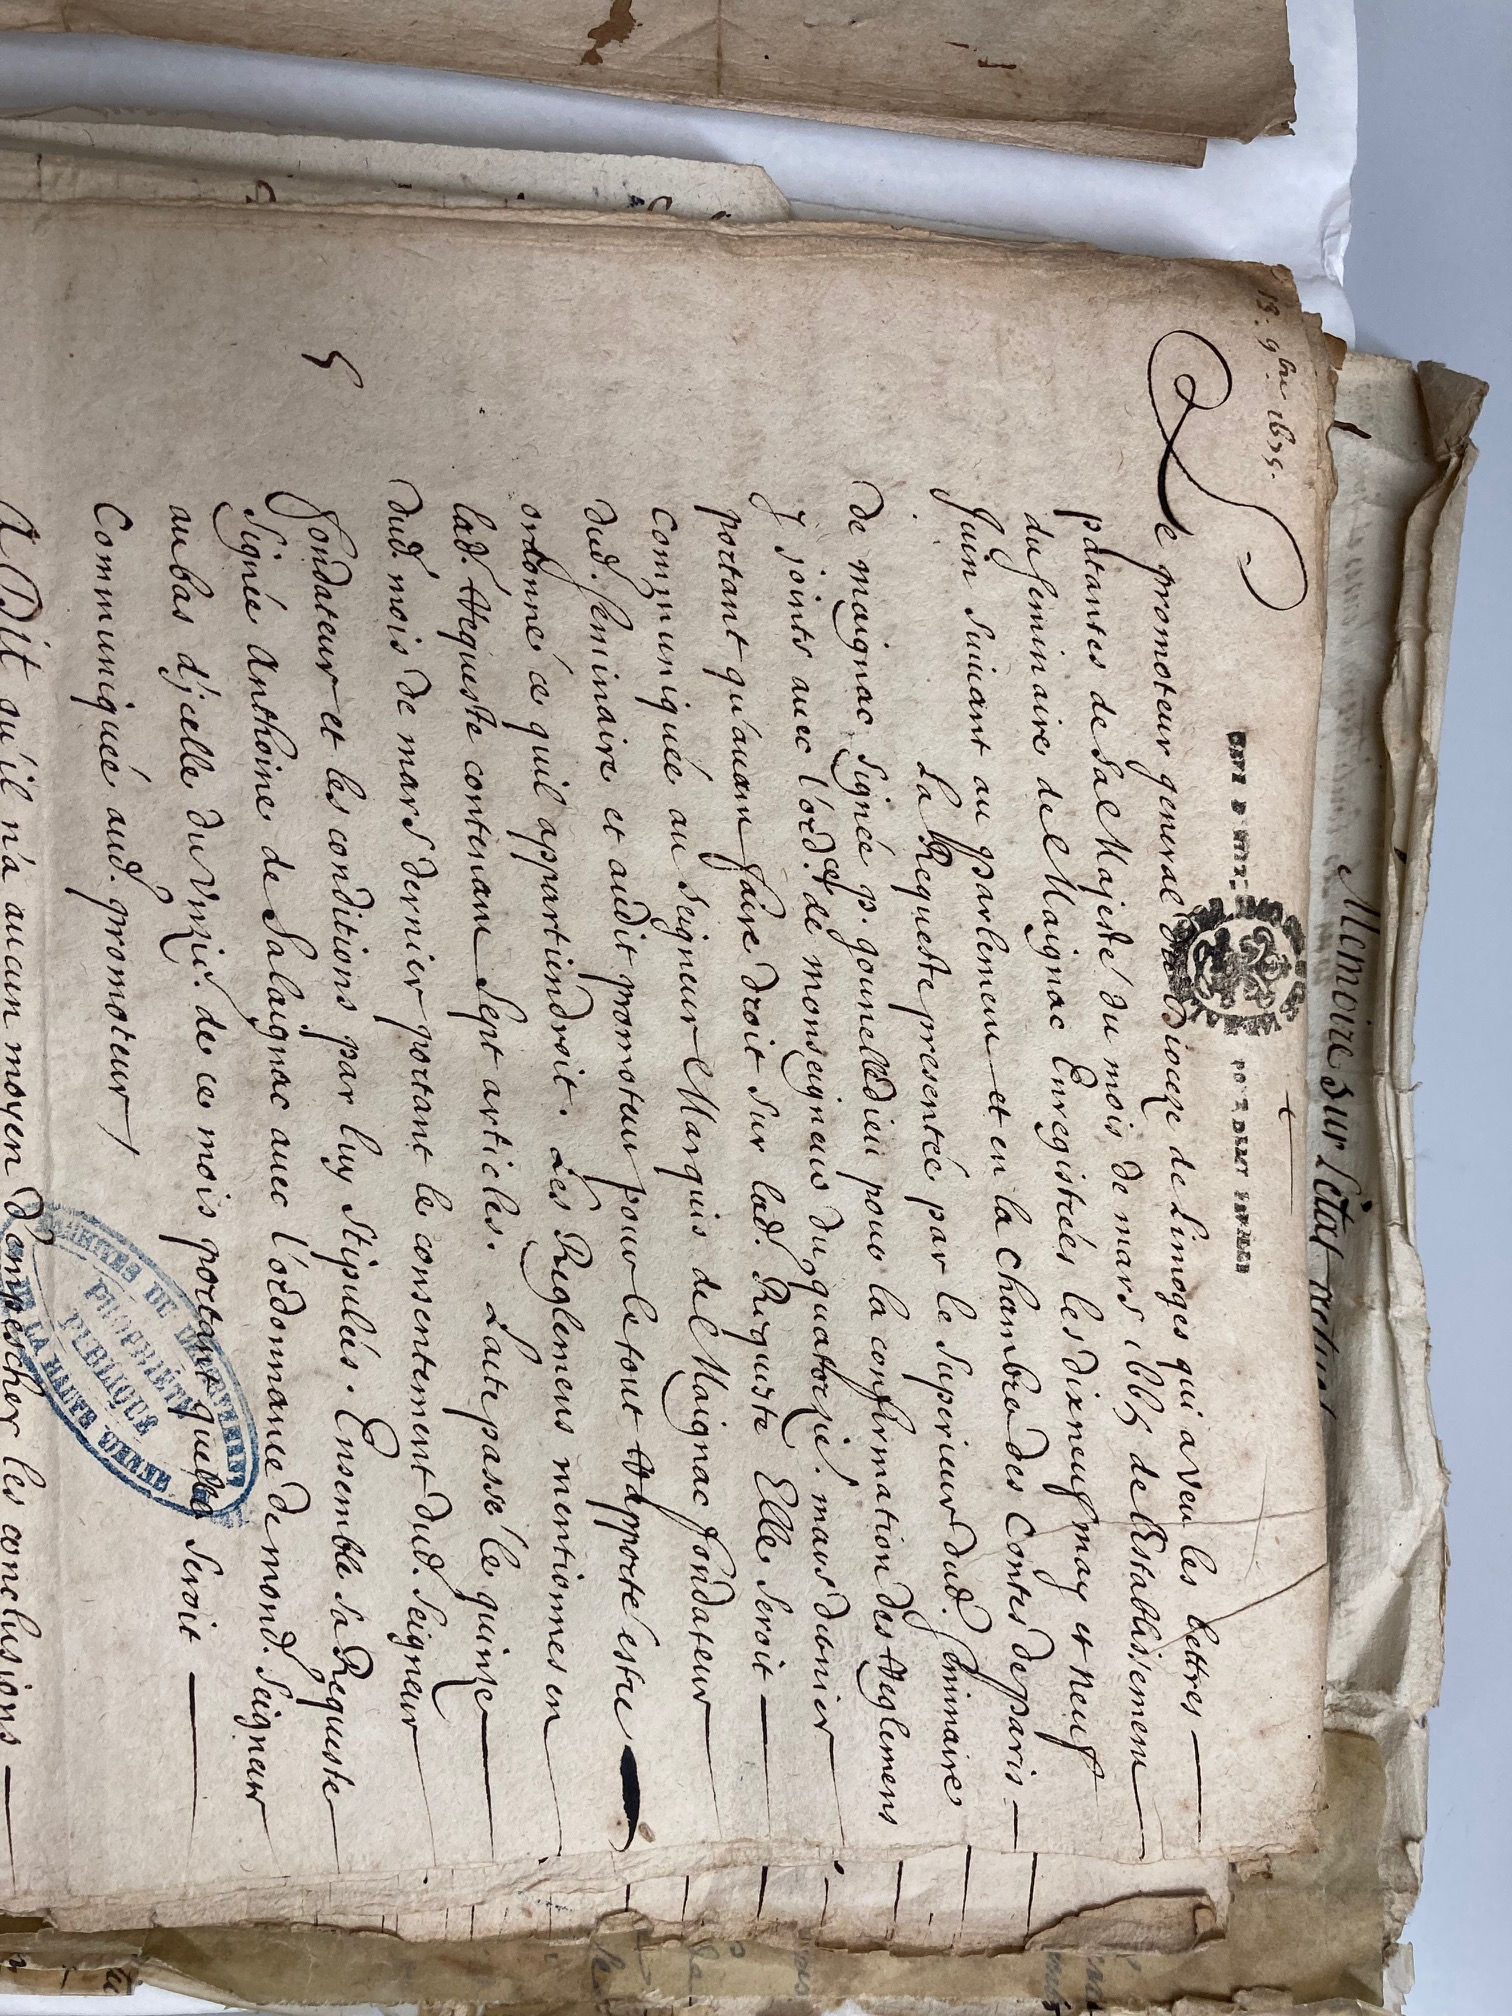 Memoire sur l'état actuel
13. 9bre 1675.
DEMY FEUILLE
Le promoteur general du Dioceze de Limoges qui a veu les Lettres
patantes de Sa Majesté du mois de mars 166 de l'Establissement
du Seminaire de Maignac Enregistrées les dixneuf may et neuf
Juin suivant au parlement et en la chambre des Contes de paris
La Requeste presentée par le Superieur dud. Seminaire
de Maignac signée p. gounelledieu pour la confirmation des Reglemens
y joints avec l'ord.ce de monseigneur du quatorzie. mars dernier
portant qu'avant faire droit sur lad. Requeste Elle seroit
communiquée au Seigneur Marquis de Maignac fondateur
dud. Seminaire et audit promoteur pour le tout Rapporté estre
ordonné ce quil appartiendroit. Les Reglemens mentionnes en
lad. Requeste contenant sept articles. L'acte passé le quinze
dud. mois de mars dernier portant le consentement dud. Seigneur
5
fondateur et les conditions par luy stipulées. Ensemble sa Requeste
signée Anthoine de Salaignac avec l'ordonnance de mond. Seigneur
au bas d'jcelle du de ce mois portant quelle seroit
Communiquée aud. promoteur
ARCHIVES DU DEPARTEMENT
DE LA HAUTE VIENNE
PROPRIÉTÉ
PUBLIQUE
A Dit qu'il n'a aucun moyen d'empescher les conclusions